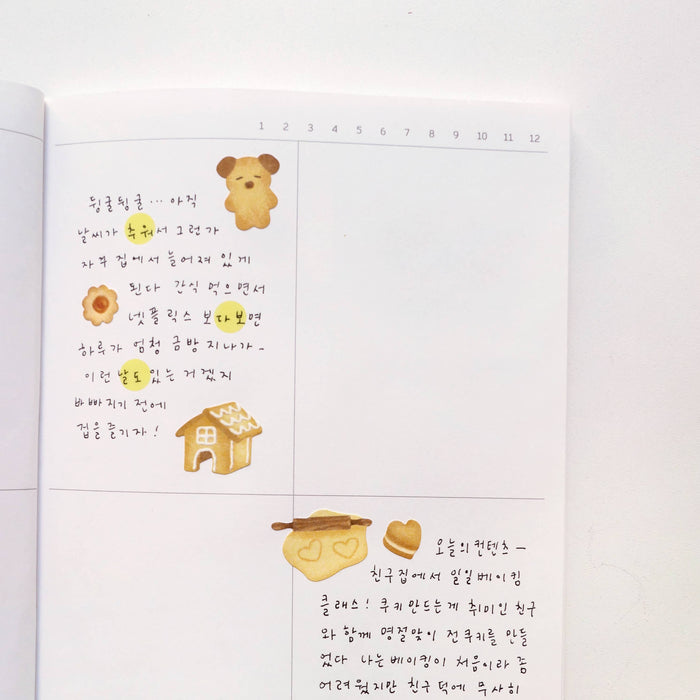 1 2 3 4 5 6 7 8 9 10 11 12
뒹굴뒹굴... 아직
날씨가 추워서 그런가
자꾸 집에서 늘어져 있게
된다 간식 먹으면서
넷플릭스 보다보면
하루가 엄청 금방 지나가-
이런 날도 있는 거겠지
바빠지기 전에
집을 즐기자!
오늘의 컨텐츠 -
친구집에서 일일베이킹
클래스! 쿠키 만드는게 취미인 친구
와 함께 명절맞이 전쿠키를 만들
었다 나는 베이킹이 처음이라 좀
어려웠지만 친구 덕에 무사히